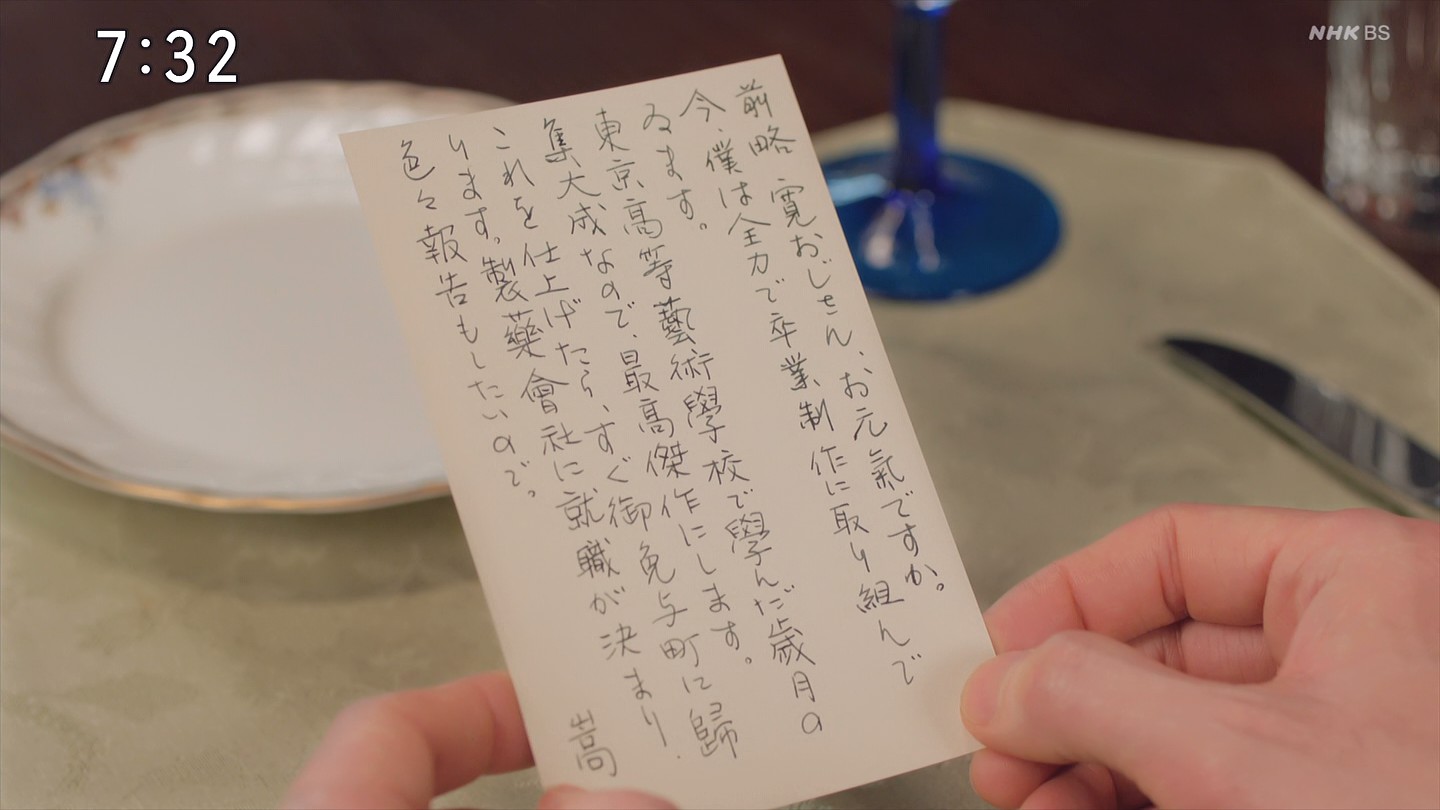 7:32
NHK BS
前略 寛おじさん、お元氣ですか。
今、僕は全力で卒業制作に取り組んで
ゐます。
東京高等藝術學校で學んだ歳月の
集大成なので、最高傑作にします。
これを仕上げたら、すぐ御免与町に歸
ります。製藥會社に就職が決まり、
色々報告もしたいので。
嵩